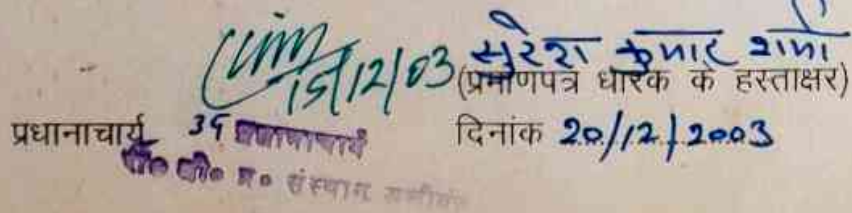 15/12/03 सुरेश कुमार शर्मा
(प्रमाणपत्र धारक के हस्ताक्षर)
प्रधानाचार्य उप प्रधानाचार्य दिनांक 20/12/2003
संस्थान